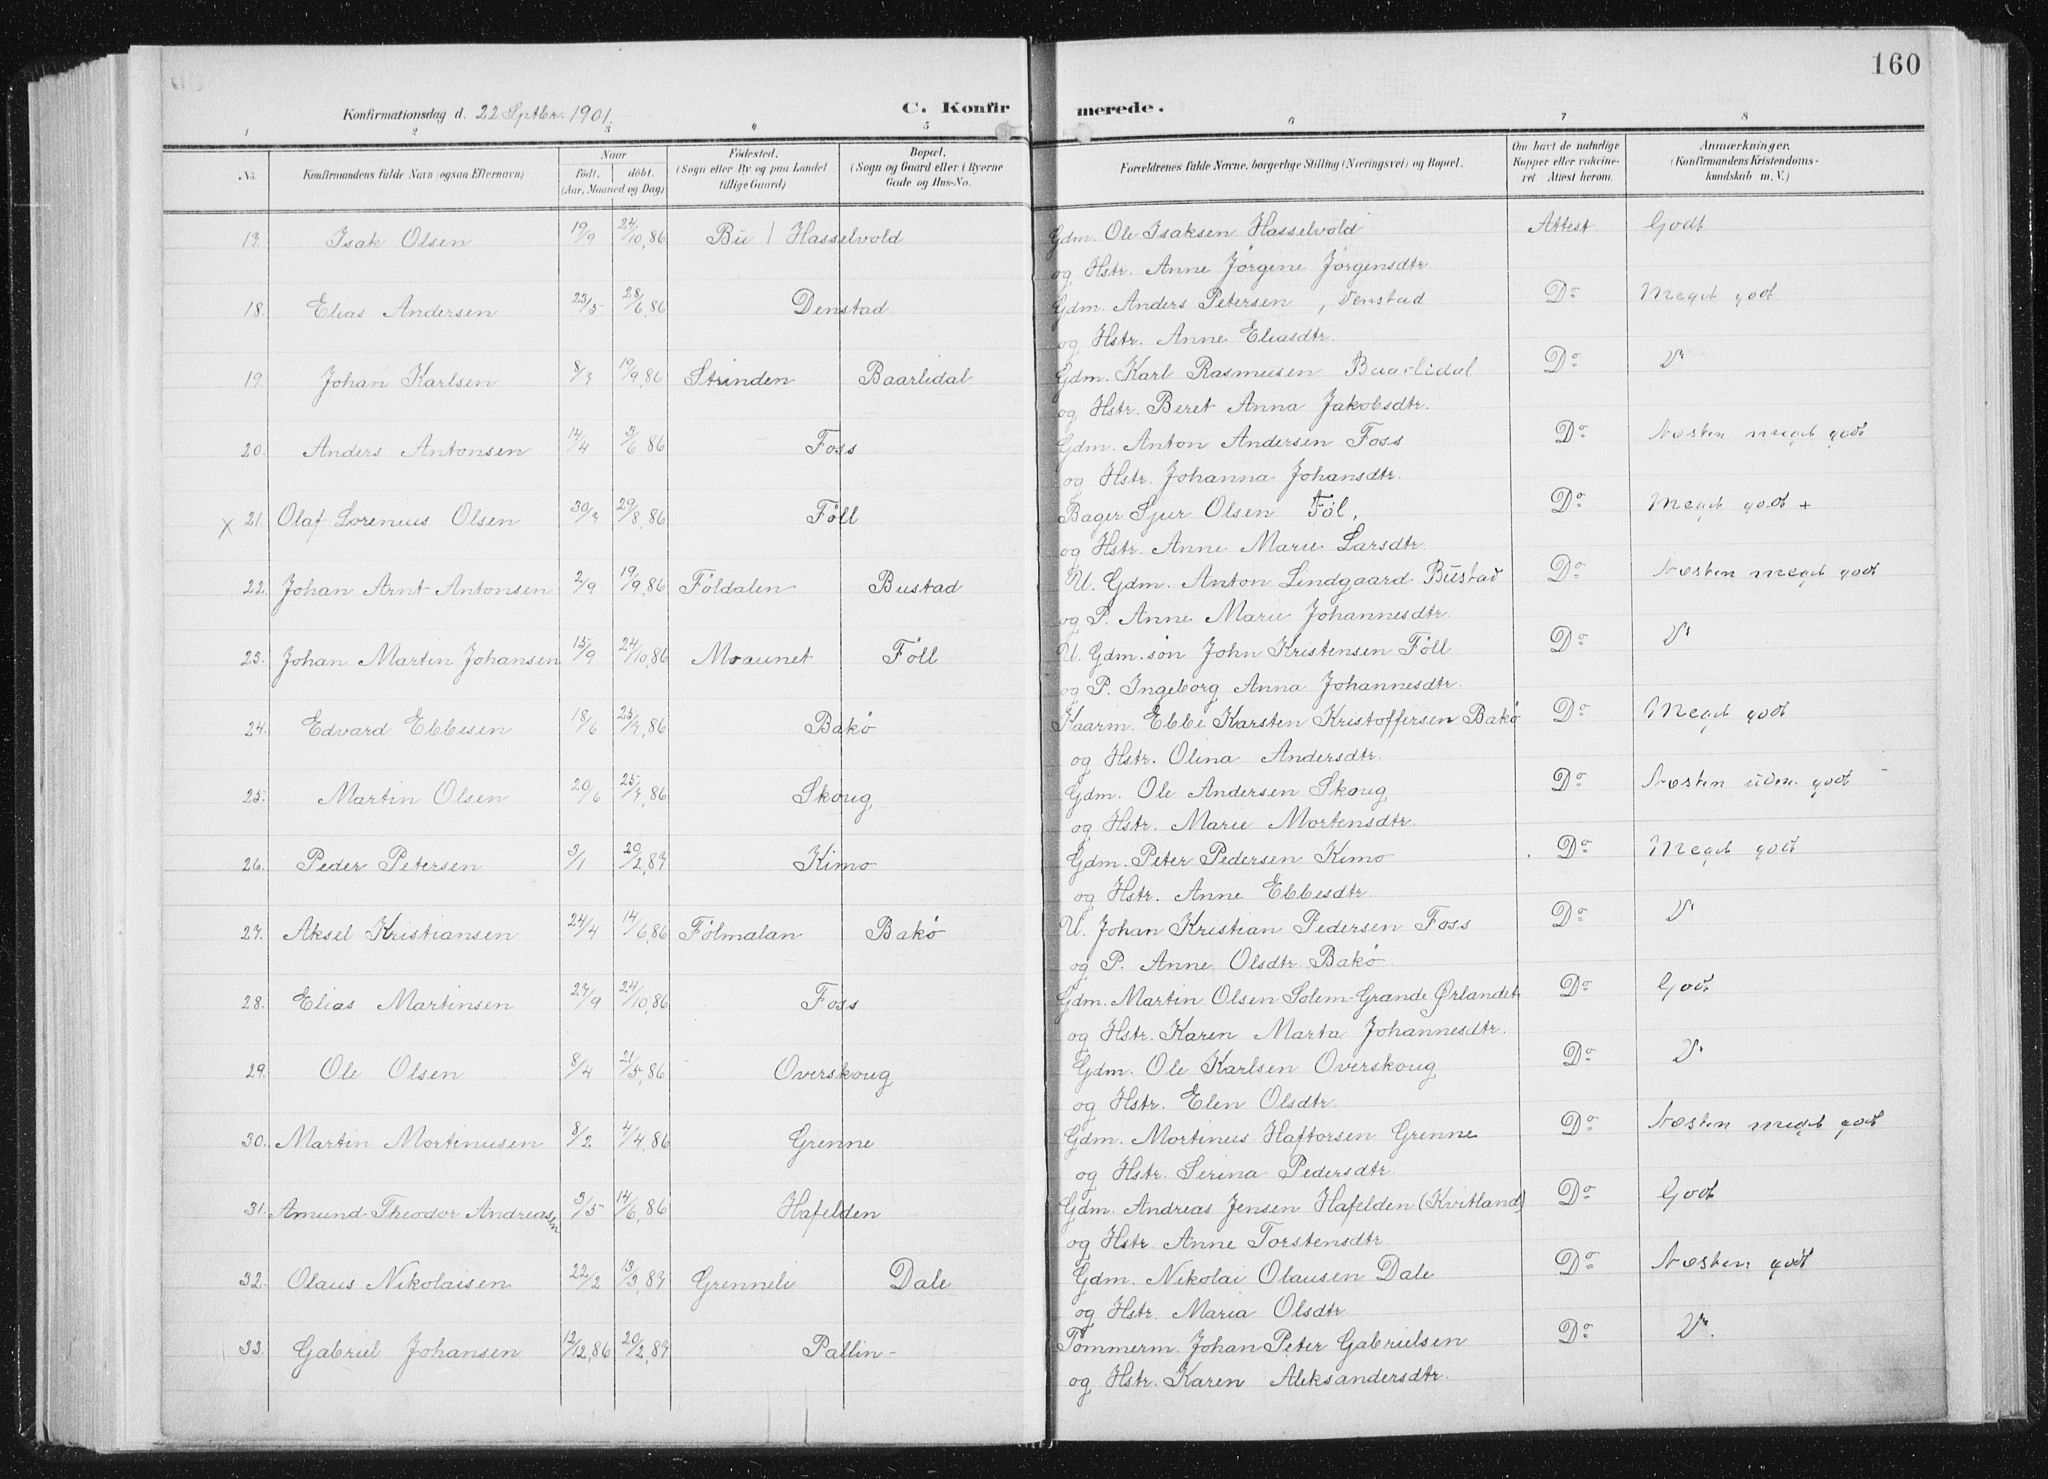 160
Konfirmationsdag d. 22 Septbr. 1901.
C. Konfir merede.
1 2 3 4 5 6 7 8
No.
Konfirmandens fulde Navn (ogsaa Efternavn)
Naar
født. døbt.
(Aar, Maaned og Dag)
Fødested.
(Sogn eller By og paa Landet
tillige Gaard)
Bopæl.
(Sogn og Gaard eller i Byerne
Gade og Hus-No.
Forældrenes fulde Navne, borgerlige Stilling (Næringsvei) og Bopæl.
Om havt de naturlige
Kopper eller vakcine-
ret. Attest herom.
Anmærkninger.
(Konfirmandens Kristendoms-
kundskab m. V.)
17. Isak Olsen 19/9 24/10,86 Bu / Hasselvold Gdm. Ole Isaksen Hasselvold Attest. Godt
og Hstr. Anne Jørgine Jørgensdtr.
18. Elias Andersen 23/5 28/6,86 Denstad Gdm. Anders Petersen, Denstad Do Meget godt
og Hstr. Anne Eliasdtr.
19. Johan Karlsen 8/7 19/9,86 Strinden Baarlidal Gdm. Karl Rasmusen Baarlidal Do
og Hstr. Beret Anna Jakobsdtr.
20. Anders Antonsen 14/4 3/6 86 Foss Gdm. Anton Andersen Foss Do Næsten meget godt
og Hstr. Johanna Johansdtr.
x 21. Olaf Lorenius Olsen 30/7 29/8,86 Föll Bager Sjur Olsen Föl, Do Meget godt +
og Hstr. Anne Marie Larsdtr.
22. Johan Arnt Antonsen 2/9 19/9,86 Földalen Bustad U. Gdm. Anton Lindgaard Bustad Do Næsten meget godt
og P. Anne Marie Johannesdtr.
23. Johan Martin Johansen 15/9 24/10,86 Moaunet Föll U. Gdm. søn John Kristensen Föll Do
og P. Ingeborg Anna Johannesdtr.
24. Edvard Ebbesen 18/6 25/7,86 Bakø Kaarm. Ebbe Karsten Kristoffersen Bakø Do Meget godt
og Hstr. Olina Andersdtr.
25. Martin Olsen 20/6 25/7,86 Skoug Gdm. Ole Andersen Skoug Do Næsten uden. godt
og Hstr. Marie Mortensdtr.
26. Peder Petersen 3/1 20/2,87 Kimo Gdm. Peter Pedersen Kimo Do Meget godt
og Hstr. Anne Ebbesdtr.
27. Aksel Kristiansen 24/4 14/6,86 Fölmalan Bakø U. Johan Kristian Pedersen Foss Do
og P. Anne Olsdtr Bakø
28. Elias Martinsen 27/9 24/10,86 Foss Gdm. Martin Olsen Solem-Grande Ørlandet Do Godt
og Hstr. Karen Marta Johannesdtr.
29. Ole Olsen 8/4 21/5,86 Overskoug Gdm. Ole Karlsen Overskoug Do
og Hstr. Elen Olsdtr.
30. Martin Mortinusen 8/2 4/4,86 Grenne Gdm. Mortinus Haftorsen Grenne Do Næsten meget godt
og Hstr. Serina Pedersdtr.
31. Amund Theodor Andreassen 3/5 14/6,86 Hafelden Gdm. Andreas Jensen Hafelden (Kvitland) Do Godt
og Hstr. Anne Torstensdtr.
32. Olaus Nikolaisen 22/2 13/3,87 Grenneli Dale Gdm. Nikolai Olausen Dale Do Næsten godt
og Hstr. Maria Olsdtr.
33. Gabriel Johansen 12/12,86 20/2,87 Pallin- Tömmerm. Johan Peter Gabrielsen Do
og Hstr. Karen Aleksandersdtr.